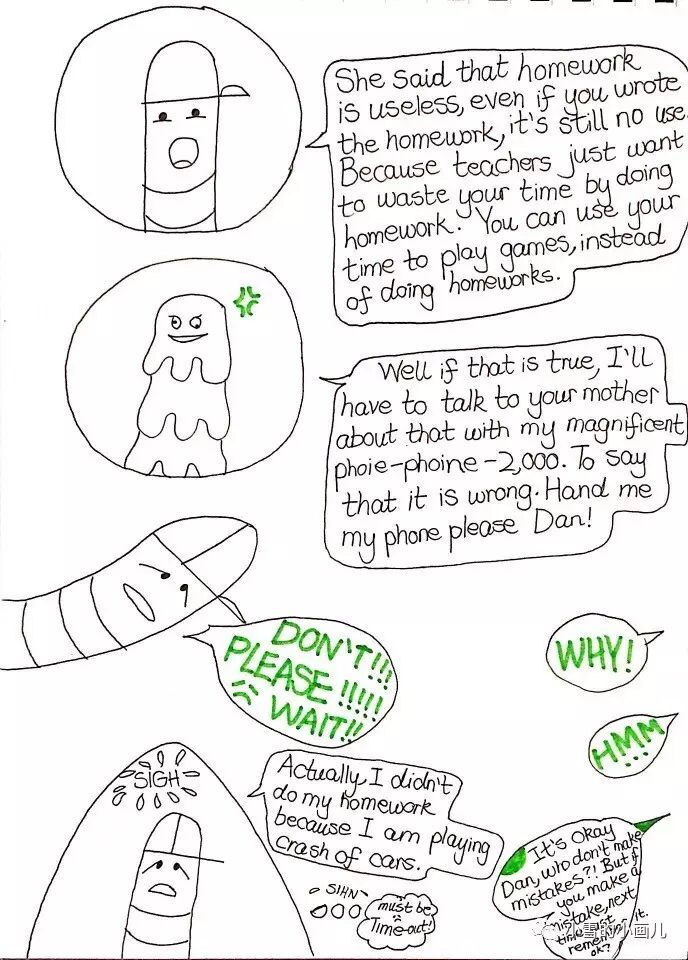 She said that homework
is useless, even if you wrote
the homework, it's still no use.
Because teachers just want
to waste your time by doing
homework. You can use your
time to play games, instead
of doing homeworks.
Well if that is true, I'll
have to talk to your mother
about that with my magnificent
phoie-phoine-2,000. To say
that it is wrong. Hand me
my phone please Dan!
DON'T!!!
PLEASE !!!!!
WAIT!!
WHY!
HMM
!!!!
SIGH
Actually I didn't
do my homework
because I am playing
crash of cars.
SIHN
must be
Time-out!
It's okay
Dan, who don't make
mistakes?! But if
you make a
mistake, next
time just
remember it.
ok?
小雪的小画儿